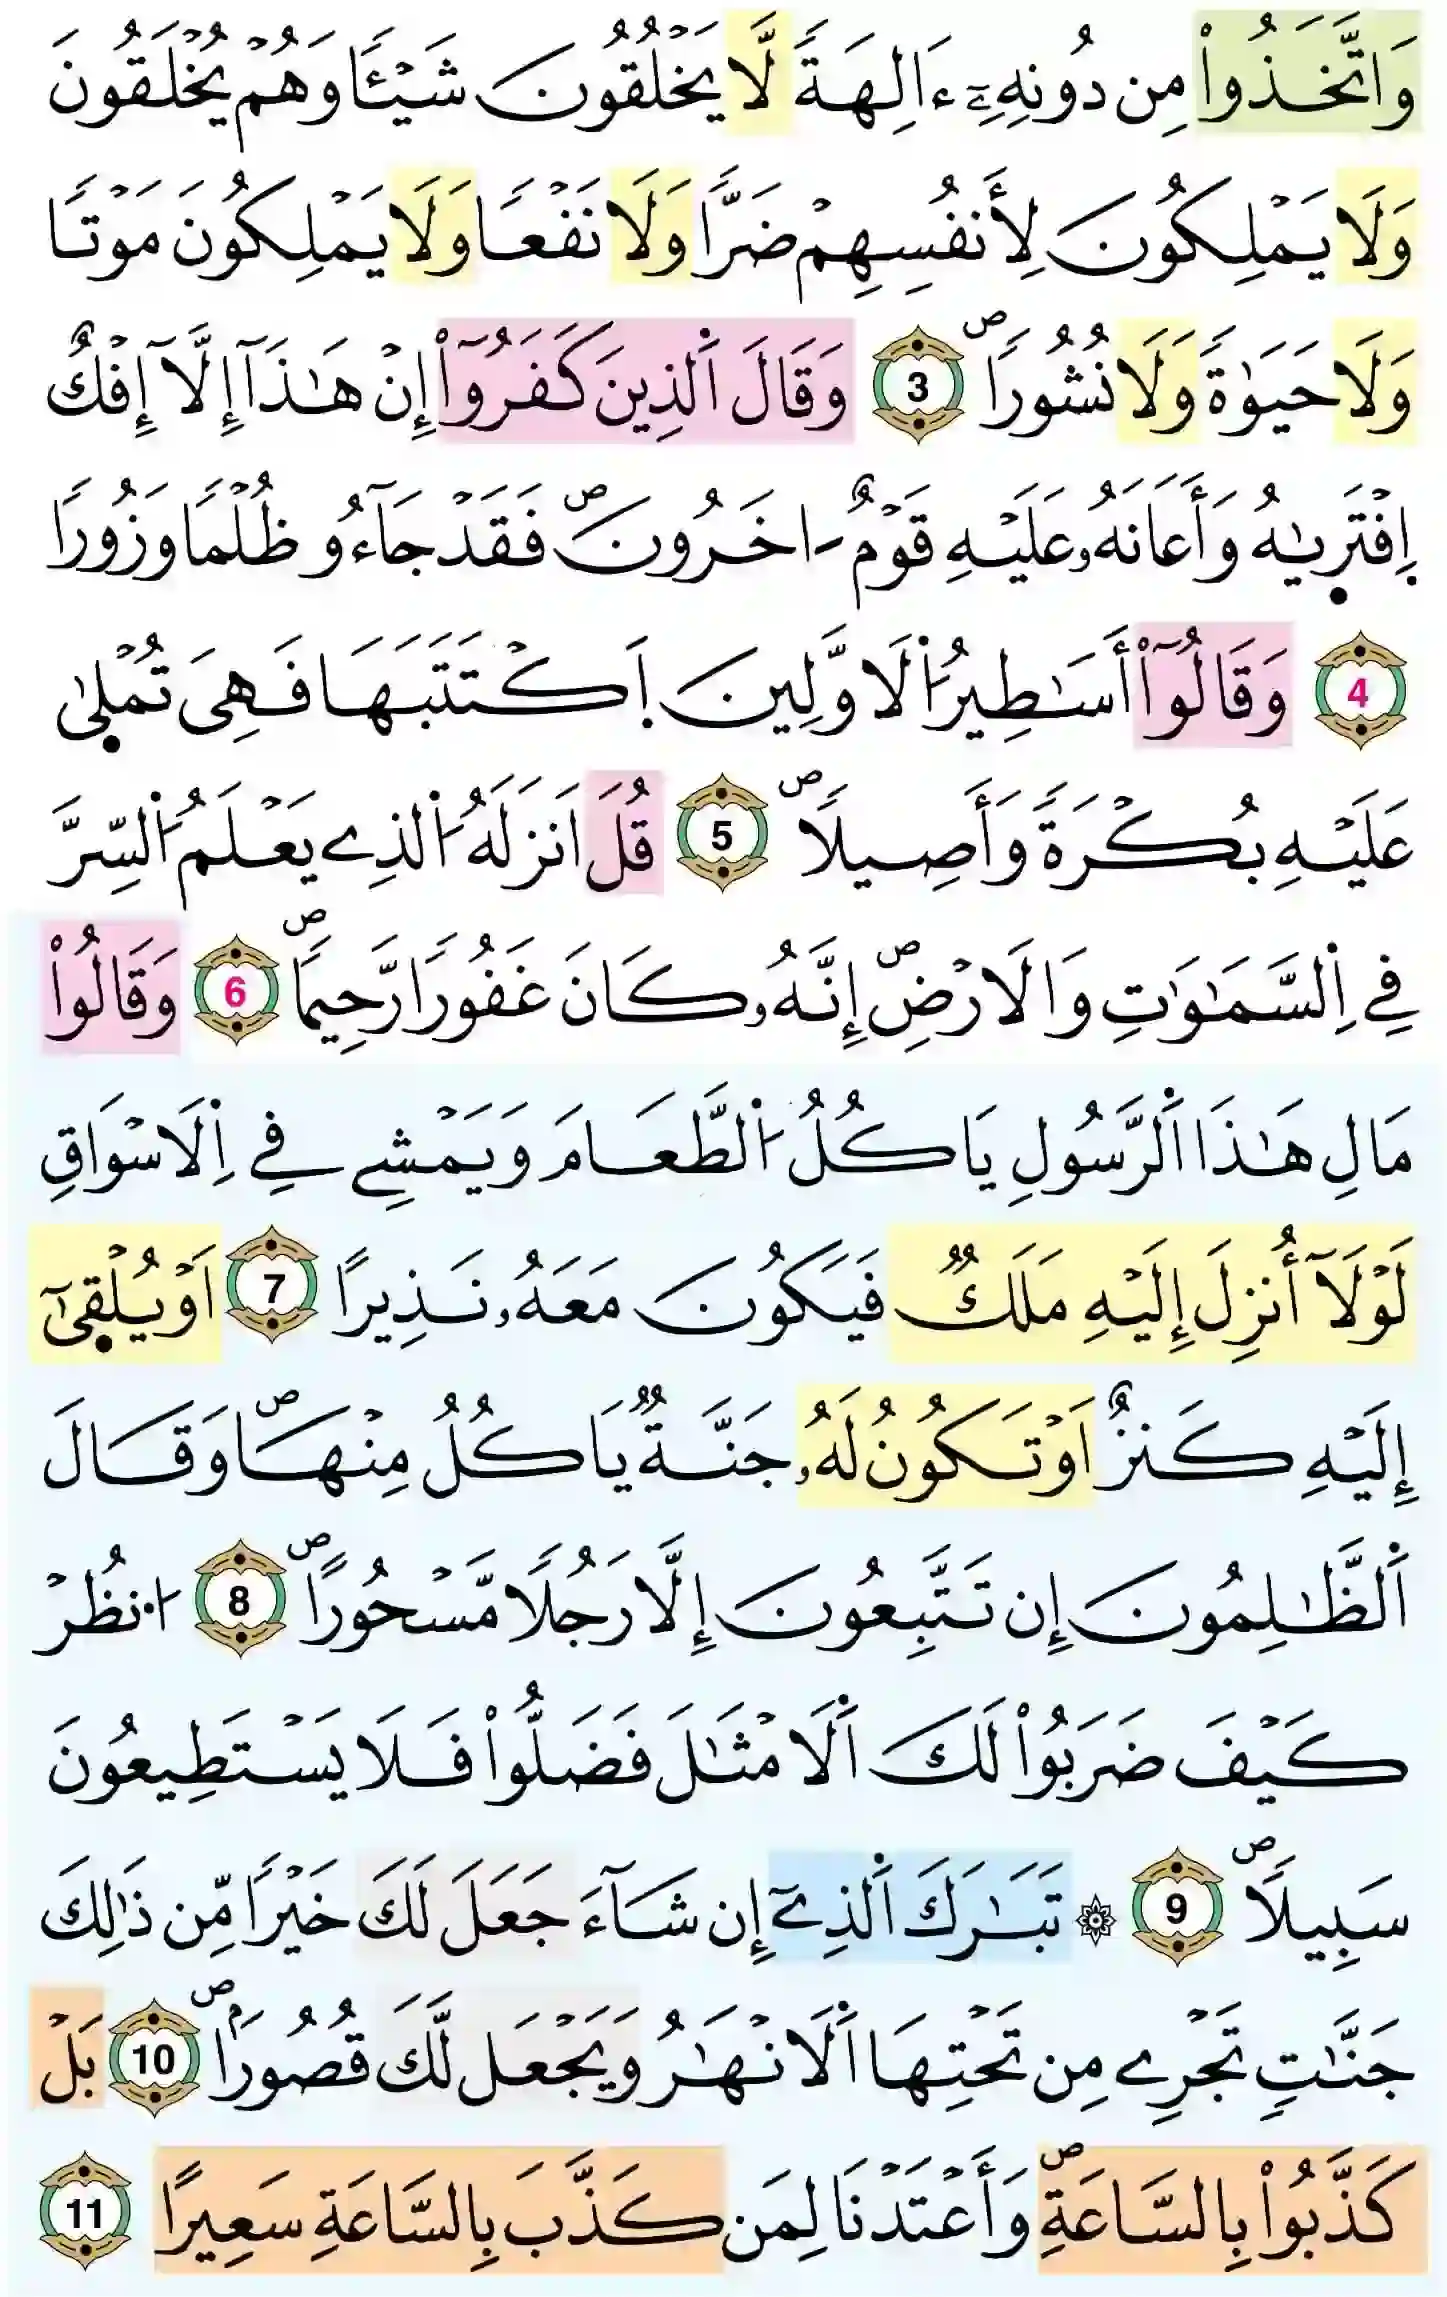 وَاتَّخَذُواْ مِن دُونِهِۦٓ ءَالِهَةً لَّا يَخْلُقُونَ شَيْـًٔا وَهُمْ يُخْلَقُونَ
وَلَا يَمْلِكُونَ لِأَنفُسِهِمْ ضَرًّا وَلَا نَفْعًا وَلَا يَمْلِكُونَ مَوْتًا
وَلَا حَيَوٰةً وَلَا نُشُورًاۖ 3 وَقَالَ اَ۬لذِينَ كَفَرُوٓاْ إِنْ هَٰذَآ إِلَّآ إِفْكٌ
اِ۪فْتَر۪يٰهُ وَأَعَانَهُۥ عَلَيْهِ قَوْمٌ اٰخَرُونَۖ فَقَدْ جَآءُو ظُلْمًا وَزُورًا
4 وَقَالُوٓاْ أَسَٰطِيرُ اُ۬لَاوَّلِينَ اَ۪كْتَتَبَهَا فَهِىَ تُمْل۪يٰ
عَلَيْهِ بُكْرَةً وَأَصِيلًاۖ 5 قُلَ اَنزَلَهُ اُ۬لذِے يَعْلَمُ اُ۬لسِّرَّ
فِے اِ۬لسَّمَٰوَٰتِ وَالَارْضِۖ إِنَّهُۥ كَانَ غَفُورًا رَّحِيمًاۖ 6 وَقَالُواْ
مَالِ هَٰذَا اَ۬لرَّسُولِ يَاكُلُ اُ۬لطَّعَامَ وَيَمْشِے فِے اِ۬لَاسْوَاقِ
لَوْلَآ أُنزِلَ إِلَيْهِ مَلَكٌ فَيَكُونَ مَعَهُۥ نَذِيرًا 7 اَوْ يُلْق۪يٰٓ
إِلَيْهِ كَنزٌ اَوْ تَكُونُ لَهُۥ جَنَّةٌ يَاكُلُ مِنْهَاۖ وَقَالَ
اَ۬لظَّٰلِمُونَ إِن تَتَّبِعُونَ إِلَّا رَجُلًا مَّسْحُورًاۖ 8 اُ۟نظُرْ
كَيْفَ ضَرَبُواْ لَكَ اَ۬لَامْثَٰلَ فَضَلُّواْ فَلَا يَسْتَطِيعُونَ
سَبِيلًاۖ 9 ۞ تَبَٰرَكَ اَ۬لذِےٓ إِن شَآءَ جَعَلَ لَكَ خَيْرًا مِّن ذَٰلِكَ
جَنَّٰتٍ تَجْرِے مِن تَحْتِهَا اَ۬لَانْهَٰرُ وَيَجْعَل لَّكَ قُصُورًاۢۖ 10 بَلْ
كَذَّبُواْ بِالسَّاعَةِۖ وَأَعْتَدْنَا لِمَن كَذَّبَ بِالسَّاعَةِ سَعِيرًا 11